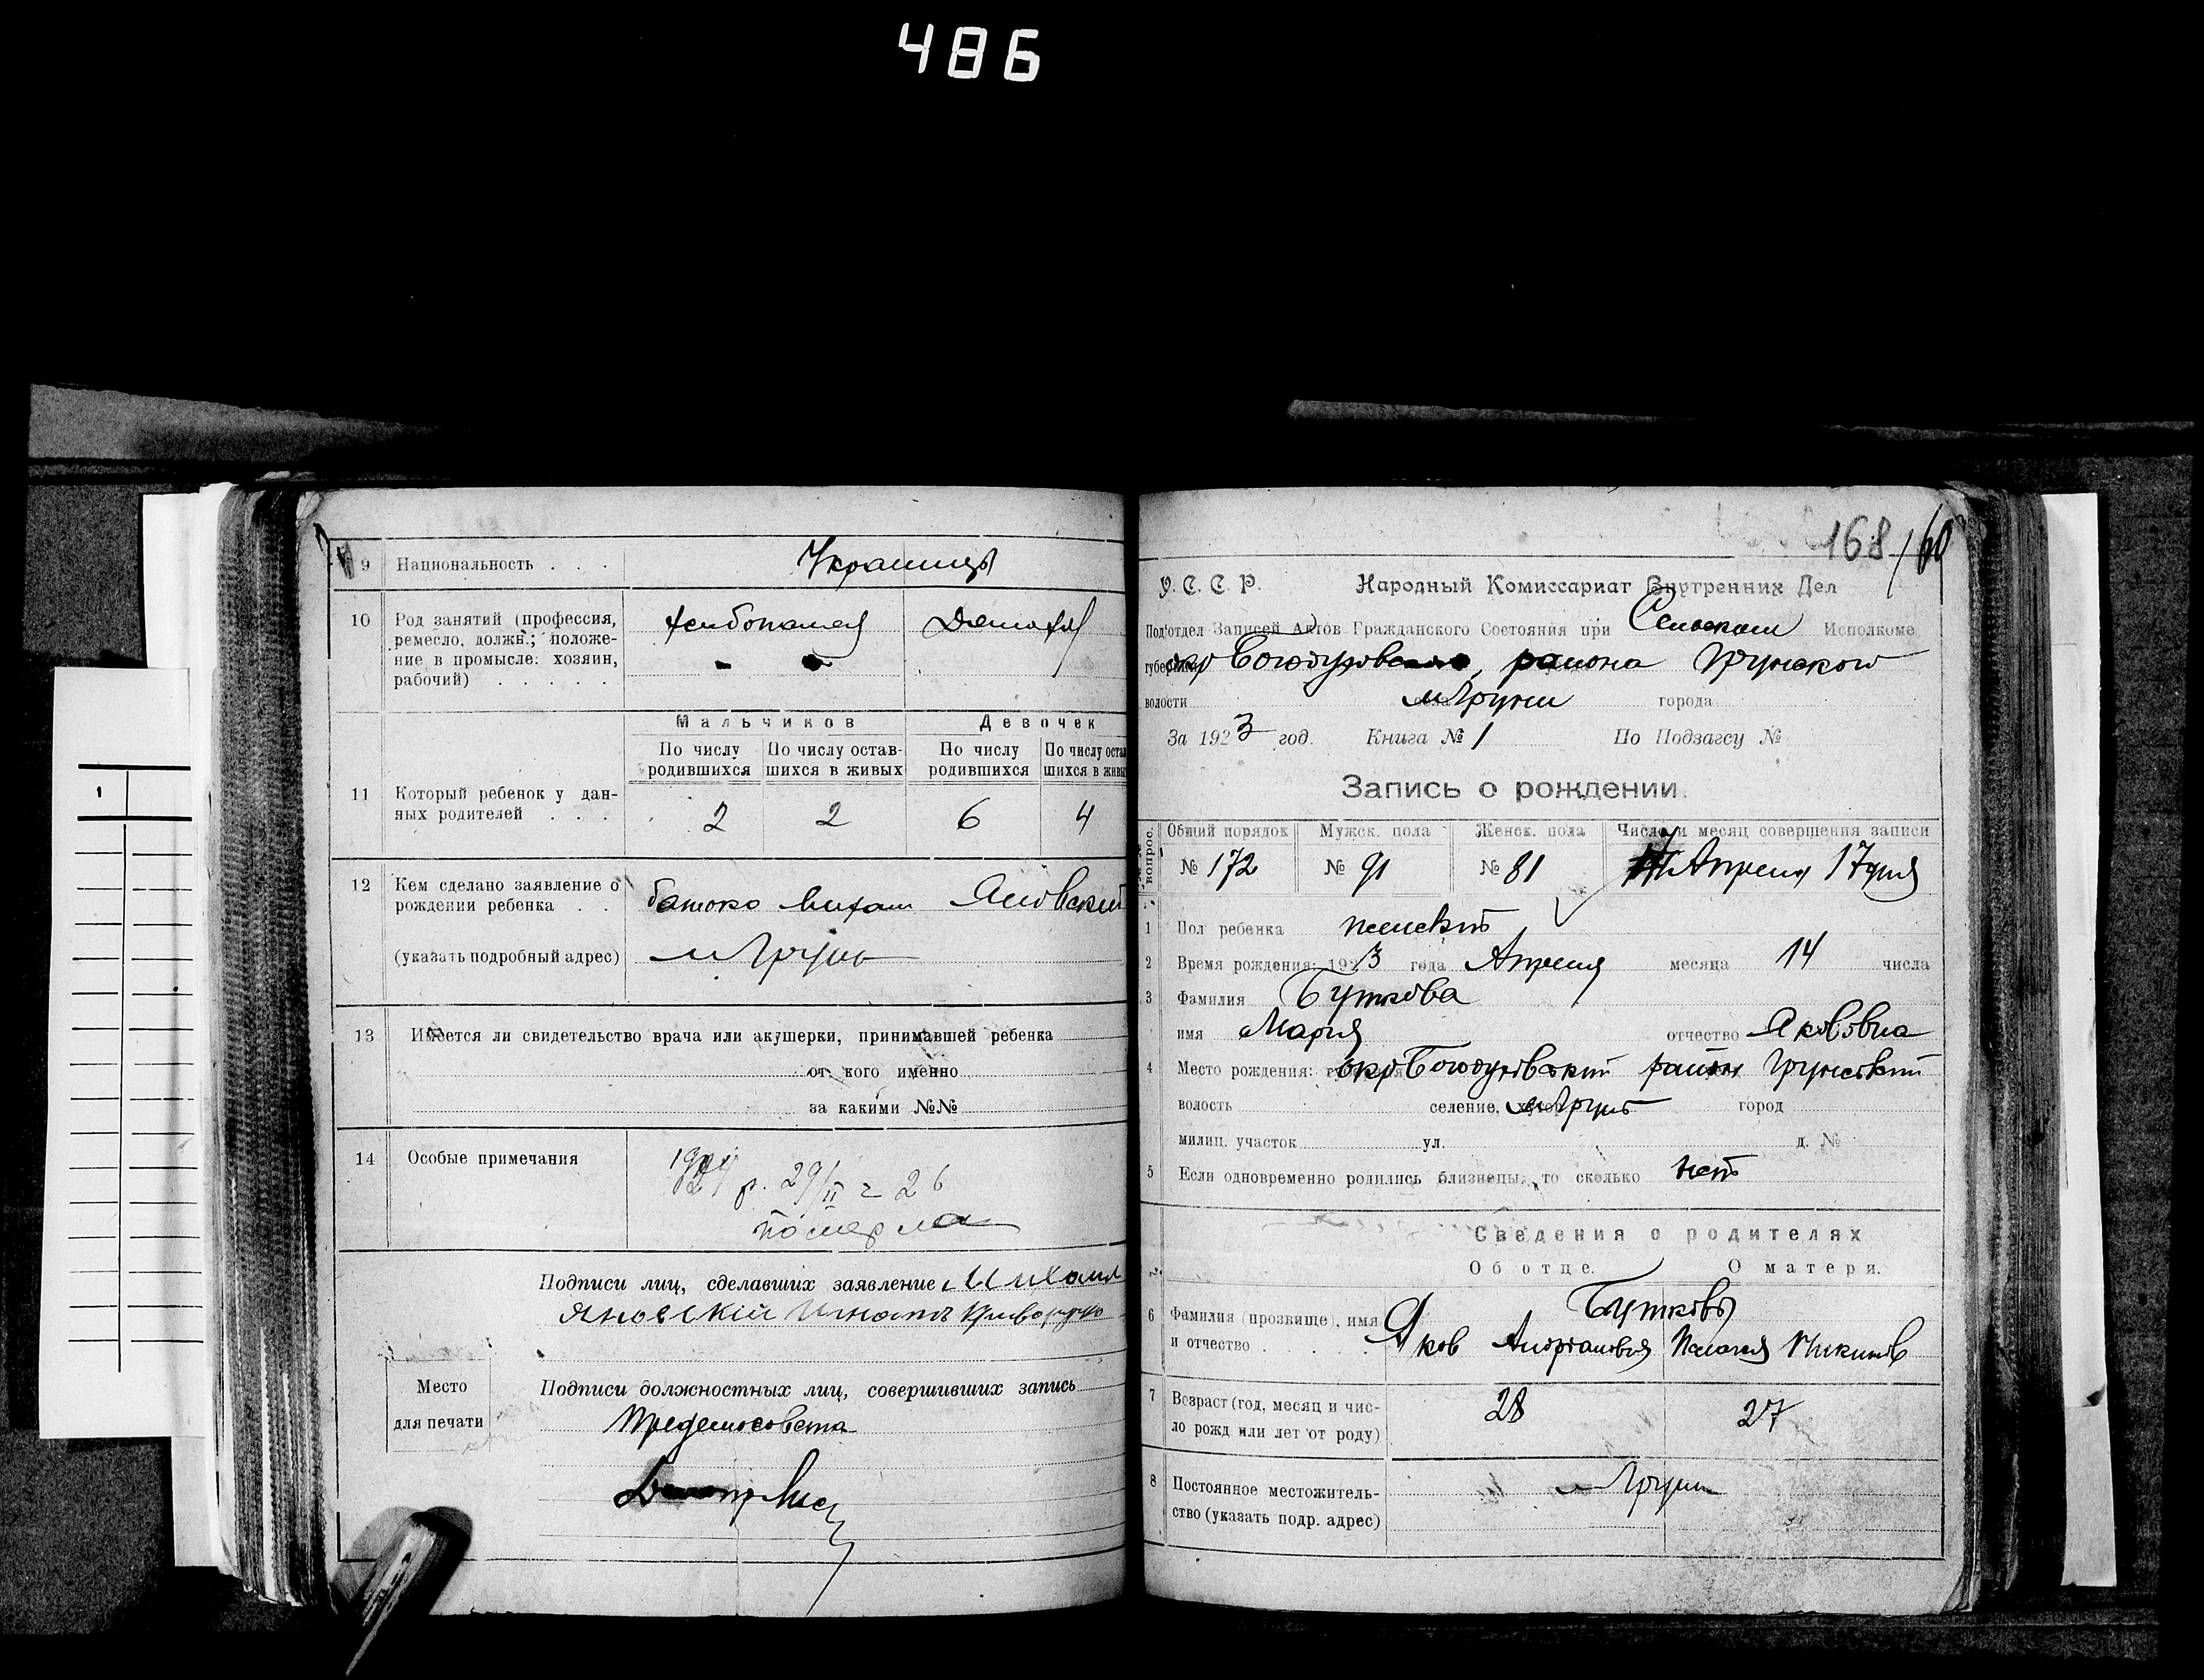 486
9 Национальность . . . Украинцы
10 Род занятий (профессия, ремесло, должн.; положение в промысле: хозяин, рабочий) . . . . . хлебопашец Домохоз
Мальчиков Девочек
По числу родившихся По числу оставшихся в живых По числу родившихся По числу остав шихся в живы
11 Который ребенок у данных родителей . . . 2 2 6 4
12 Кем сделано заявление о рождении ребенка . . батько Михаил Яновский
(указать подробный адрес) м Грунь
13 Имеется ли свидетельство врача или акушерки, принимавшей ребенка
от кого именно
за какими №№
14 Особые примечания 1924 р. 29/II г 26
померла
Подписи лиц, сделавших заявление Михаил
Яновскій Игнатъ Криворучко
Место для печати
Подписи должностных лиц, совершивших запись
Предсельсовета
168 / 60
У. С. С. Р. Народный Комиссариат Внутренних Дел
Под'отдел Записей Актов Гражданского Состояния при Сельском Исполкоме
губернии окр Богодуховского, района Грунского
волости м Груни города
За 1923 год. Книга № 1 По Подзагсу №
Запись о рождении.
№№ вопрос. Общий порядок Мужск. пола Женск. пола Число и месяц совершения записи
№ 172 № 91 № 81 Апреля 17 дня
1 Пол ребенка женский
2 Время рождения: 1923 года Апреля месяца 14 числа
3 Фамилия Буткова
имя Мария отчество Якововна
4 Место рождения: окр Богодуховский район Грунский
волость селение, хутор м Грунь город
милиц. участок ул. д. №
5 Если одновременно родились близнецы, то сколько нет
Сведения о родителях
Об отце. О матери.
Бутковы
6 Фамилия (прозвище), имя и отчество . . . . Яков Пелагея
7 Возраст (год, месяц и число рожд или лет от роду) 28 27
8 Постоянное местожительство (указать подр. адрес) м Грунь